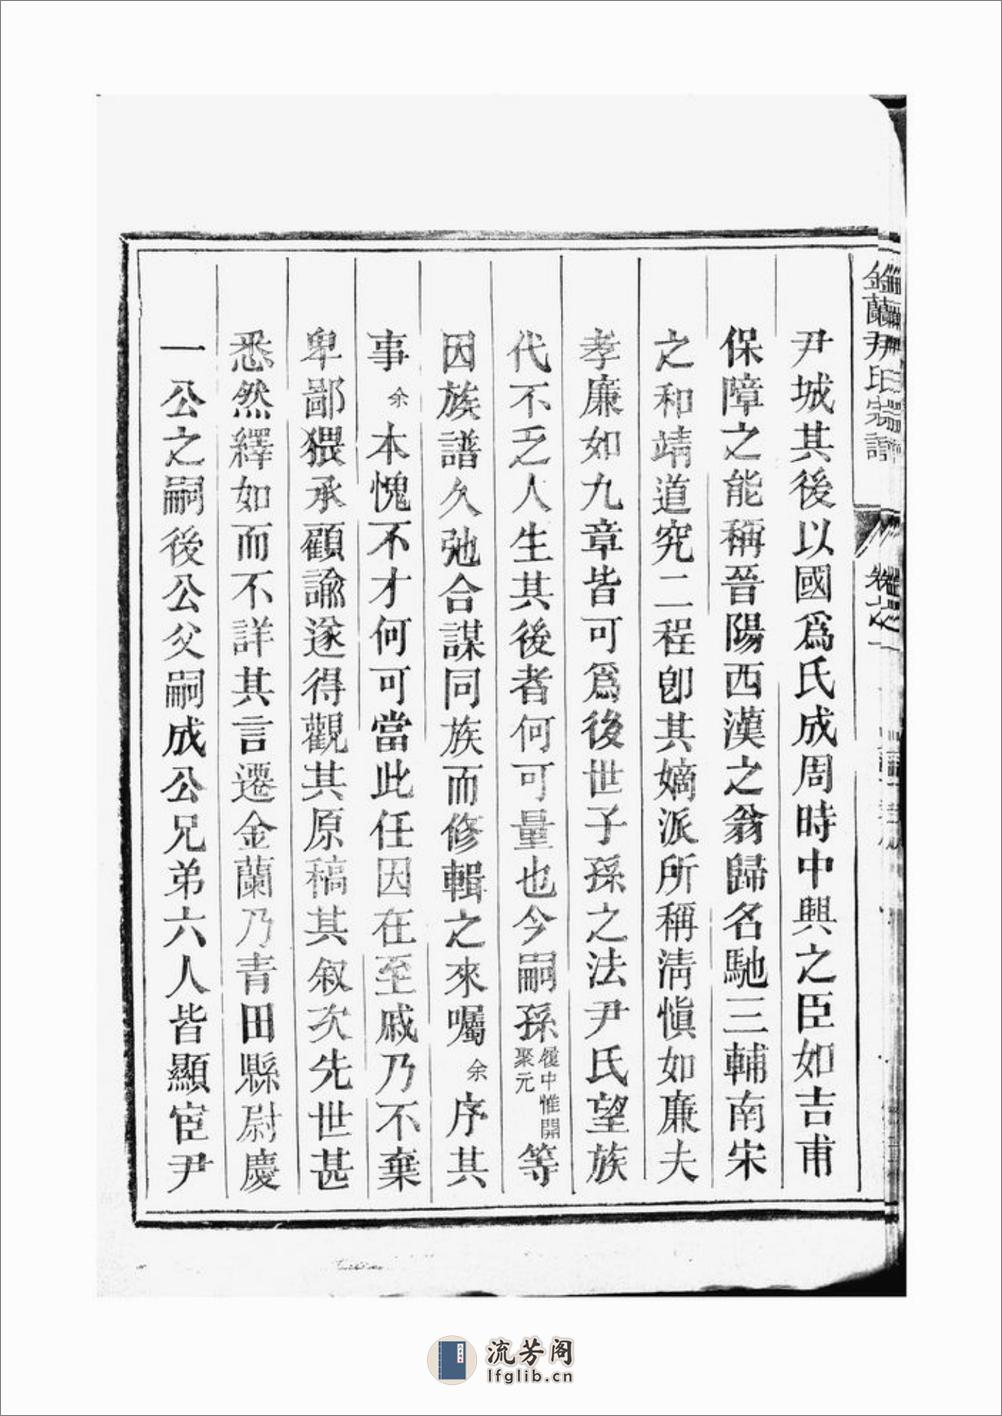 金蘭尹氏宗譜
卷之一
尹城其後以國爲氏成周時中興之臣如吉甫
保障之能稱晉陽西漢之翁歸名馳三輔南宋
之和靖道究二程卽其嫡派所稱淸愼如廉夫
孝廉如九章皆可爲後世子孫之法尹氏望族
代不乏人生其後者何可量也今嗣孫履中惟開聚元等
因族譜久弛合謀同族而修輯之來囑余序其
事余本愧不才何可當此任因在至戚乃不棄
卑鄙猥承顧諭遂得觀其原稿其叙次先世甚
悉然繹如而不詳其言遷金蘭乃青田縣尉慶
一公之嗣後公父嗣成公兄弟六人皆顯宦尹
流芳阁
lfglib.cn